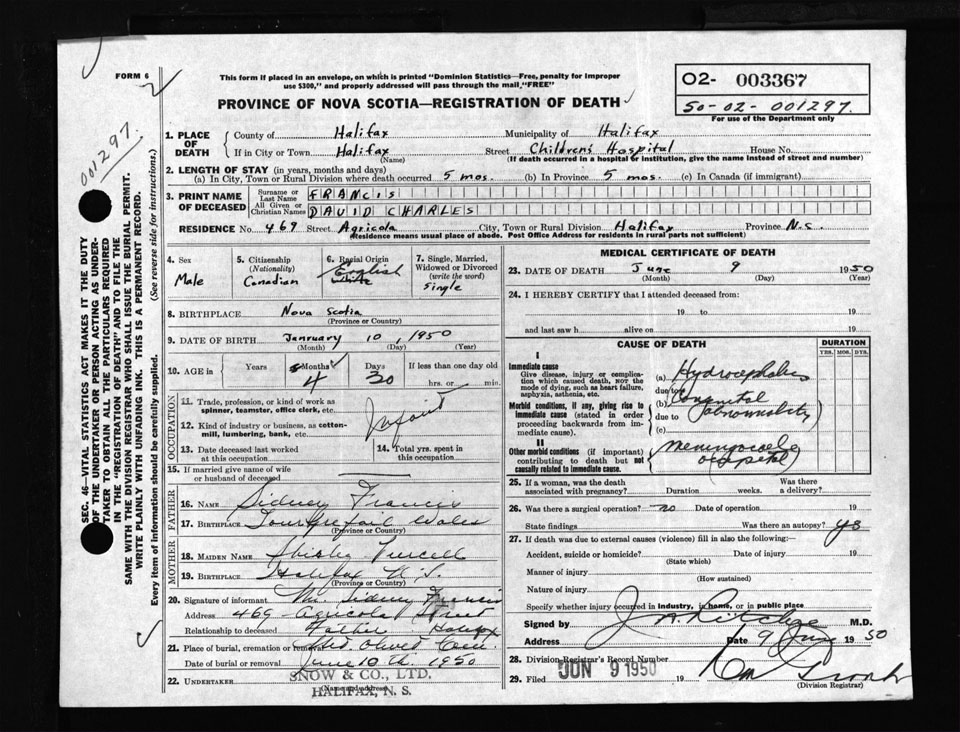 FORM 6
2
This form if placed in an envelope, on which is printed "Dominion Statistics—Free, penalty for improper
use $300," and properly addressed will pass through the mail, "FREE"
PROVINCE OF NOVA SCOTIA—REGISTRATION OF DEATH
O2- 003367
50-02-001297.
For use of the Department only
001297.
SEC. 46—VITAL STATISTICS ACT MAKES IT THE DUTY
OF THE UNDERTAKER OR PERSON ACTING AS UNDER-
TAKER TO OBTAIN ALL THE PARTICULARS REQUIRED
IN THE "REGISTRATION OF DEATH" AND TO FILE THE
SAME WITH THE DIVISION REGISTRAR WHO SHALL ISSUE THE BURIAL PERMIT.
WRITE PLAINLY WITH UNFADING INK. THIS IS A PERMANENT RECORD.
Every item of Information should be carefully supplied. (See reverse side for instructions.)
1. PLACE OF DEATH County of Halifax Municipality of Halifax
If in City or Town Halifax (Name) Street Children's Hospital House No.
(If death occurred in a hospital or institution, give the name instead of street and number)
2. LENGTH OF STAY (in years, months and days)
(a) In City, Town or Rural Division where death occurred 5 mos. (b) In Province 5 mos. (c) In Canada (if immigrant)
3. PRINT NAME OF DECEASED Surname or Last Name FRANCIS
All Given or Christian Names DAVID CHARLES
RESIDENCE No. 469 Street Agricola City, Town or Rural Division Halifax Province N.S.
(Residence means usual place of abode. Post Office Address for residents in rural parts not sufficient)
4. Sex Male
5. Citizenship (Nationality) Canadian
6. Racial Origin English White
7. Single, Married, Widowed or Divorced (write the word) Single
8. BIRTHPLACE Nova Scotia
(Province or Country)
9. DATE OF BIRTH Janruary 10, 1950
(Month) (Day) (Year)
10. AGE in Years Months 4 Days 30 If less than one day old hrs. or min.
OCCUPATION
11. Trade, profession, or kind of work as spinner, teamster, office clerk, etc. Infant
12. Kind of industry or business, as cotton-mill, lumbering, bank, etc.
13. Date deceased last worked at this occupation
14. Total yrs. spent in this occupation
15. If married give name of wife or husband of deceased
FATHER
16. NAME Sidney Francis
17. BIRTHPLACE Wales
(Province or Country)
MOTHER
18. MAIDEN NAME Purcell
19. BIRTHPLACE Halifax N.S.
(Province or Country)
20. Signature of informant Mr. Sidney Francis
Address 469 Agricola Street
Relationship to deceased Father Halifax
21. Place of burial, cremation or removal Mt. Olivet Cem.
Date of burial or removal June 10th. 1950
22. UNDERTAKER SNOW & CO., LTD.
(Name and address)
HALIFAX, N. S.
MEDICAL CERTIFICATE OF DEATH
23. DATE OF DEATH June 9 1950
(Month) (Day) (Year)
24. I HEREBY CERTIFY that I attended deceased from:
19 to 19
and last saw h alive on 19
CAUSE OF DEATH
DURATION
YRS. MOS. DYS.
I
Immediate cause
Give disease, injury or complication which caused death, NOT the mode of dying, such as heart failure, asphyxia, asthenia, etc.
(a) Hydrocephalus
due to
Morbid conditions, if any, giving rise to immediate cause (stated in order proceeding backwards from immediate cause).
(b) Congenital abnormality
due to
(c)
II
Other morbid conditions (if important) contributing to death but not causally related to immediate cause.
Meningocoele
25. If a woman, was the death associated with pregnancy? Duration weeks. Was there a delivery?
26. Was there a surgical operation? no Date of operation 19
State findings Was there an autopsy? yes
27. If death was due to external causes (violence) fill in also the following:—
Accident, suicide or homicide? Date of injury 19
(State which)
Manner of injury
(How sustained)
Nature of injury
Specify whether injury occurred in industry, in home, or in public place
Signed by J A Ritchie M.D.
Address Date 9 June 1950
28. Division Registrar's Record Number
29. Filed JUN 9 1950 19
(Division Registrar)